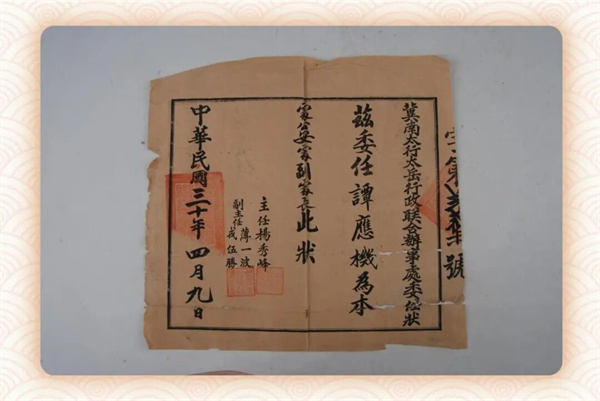 字第號
冀南太行太岳行政联合辦事處委任狀
茲委任譚應機為本
處公安處副處長此狀
主任楊秀峰
副主任薄一波
戎伍勝
中華民國三十年四月九日